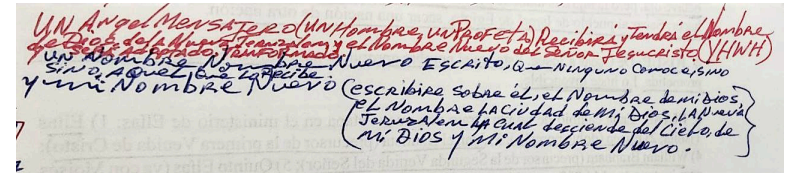 UN Ángel MENSAJERO (UN Hombre, UN Profeta) Recibirá y Tendrá el Nombre
de Dios, de la Nueva Jerusalem y el Nombre Nuevo del Señor Jesucristo. (YHWH)
UN Nombre Nuevo Escrito, Que Ninguno Conoce, sino
SINO, AQUEL que lo Recibe.
y mi Nombre Nuevo (escribiré sobre él, el Nombre de mi Dios,
el Nombre LA Ciudad de Mi Dios, LA Nueva
Jerusalem LA Cual desciende del Cielo, de
Mi Dios y Mi Nombre Nuevo.)
en el ministerio de Elías: 1) Elías
cursor de la primera Venida de Cristo);
precursor de la Segunda Venida del Señor); 5) Quinto Elías (ya con Moisés